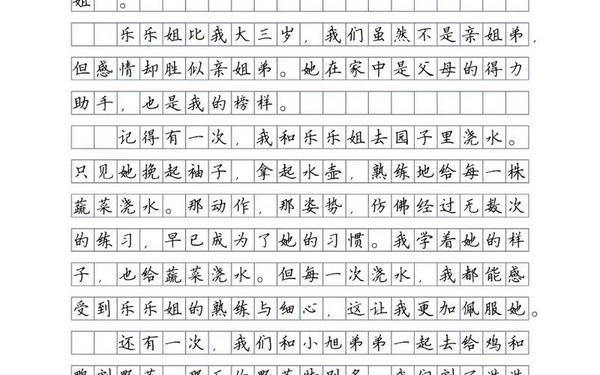 姐。
乐乐姐比我大三岁，我们虽然不是亲姐弟，
但感情却胜似亲姐弟。她在家中是父母的得力
助手，也是我的榜样。
记得有一次，我和乐乐姐去园子里浇水。
只见她挽起袖子，拿起水壶，熟练地给每一株
蔬菜浇水。那动作，那姿势，仿佛经过无数次
的练习，早已成为了她的习惯。我学着她的样
子，也给蔬菜浇水。但每一次浇水，我都能感
受到乐乐姐的熟练与细心，这让我更加佩服她。
还有一次，我们和小旭弟弟一起去给鸡和